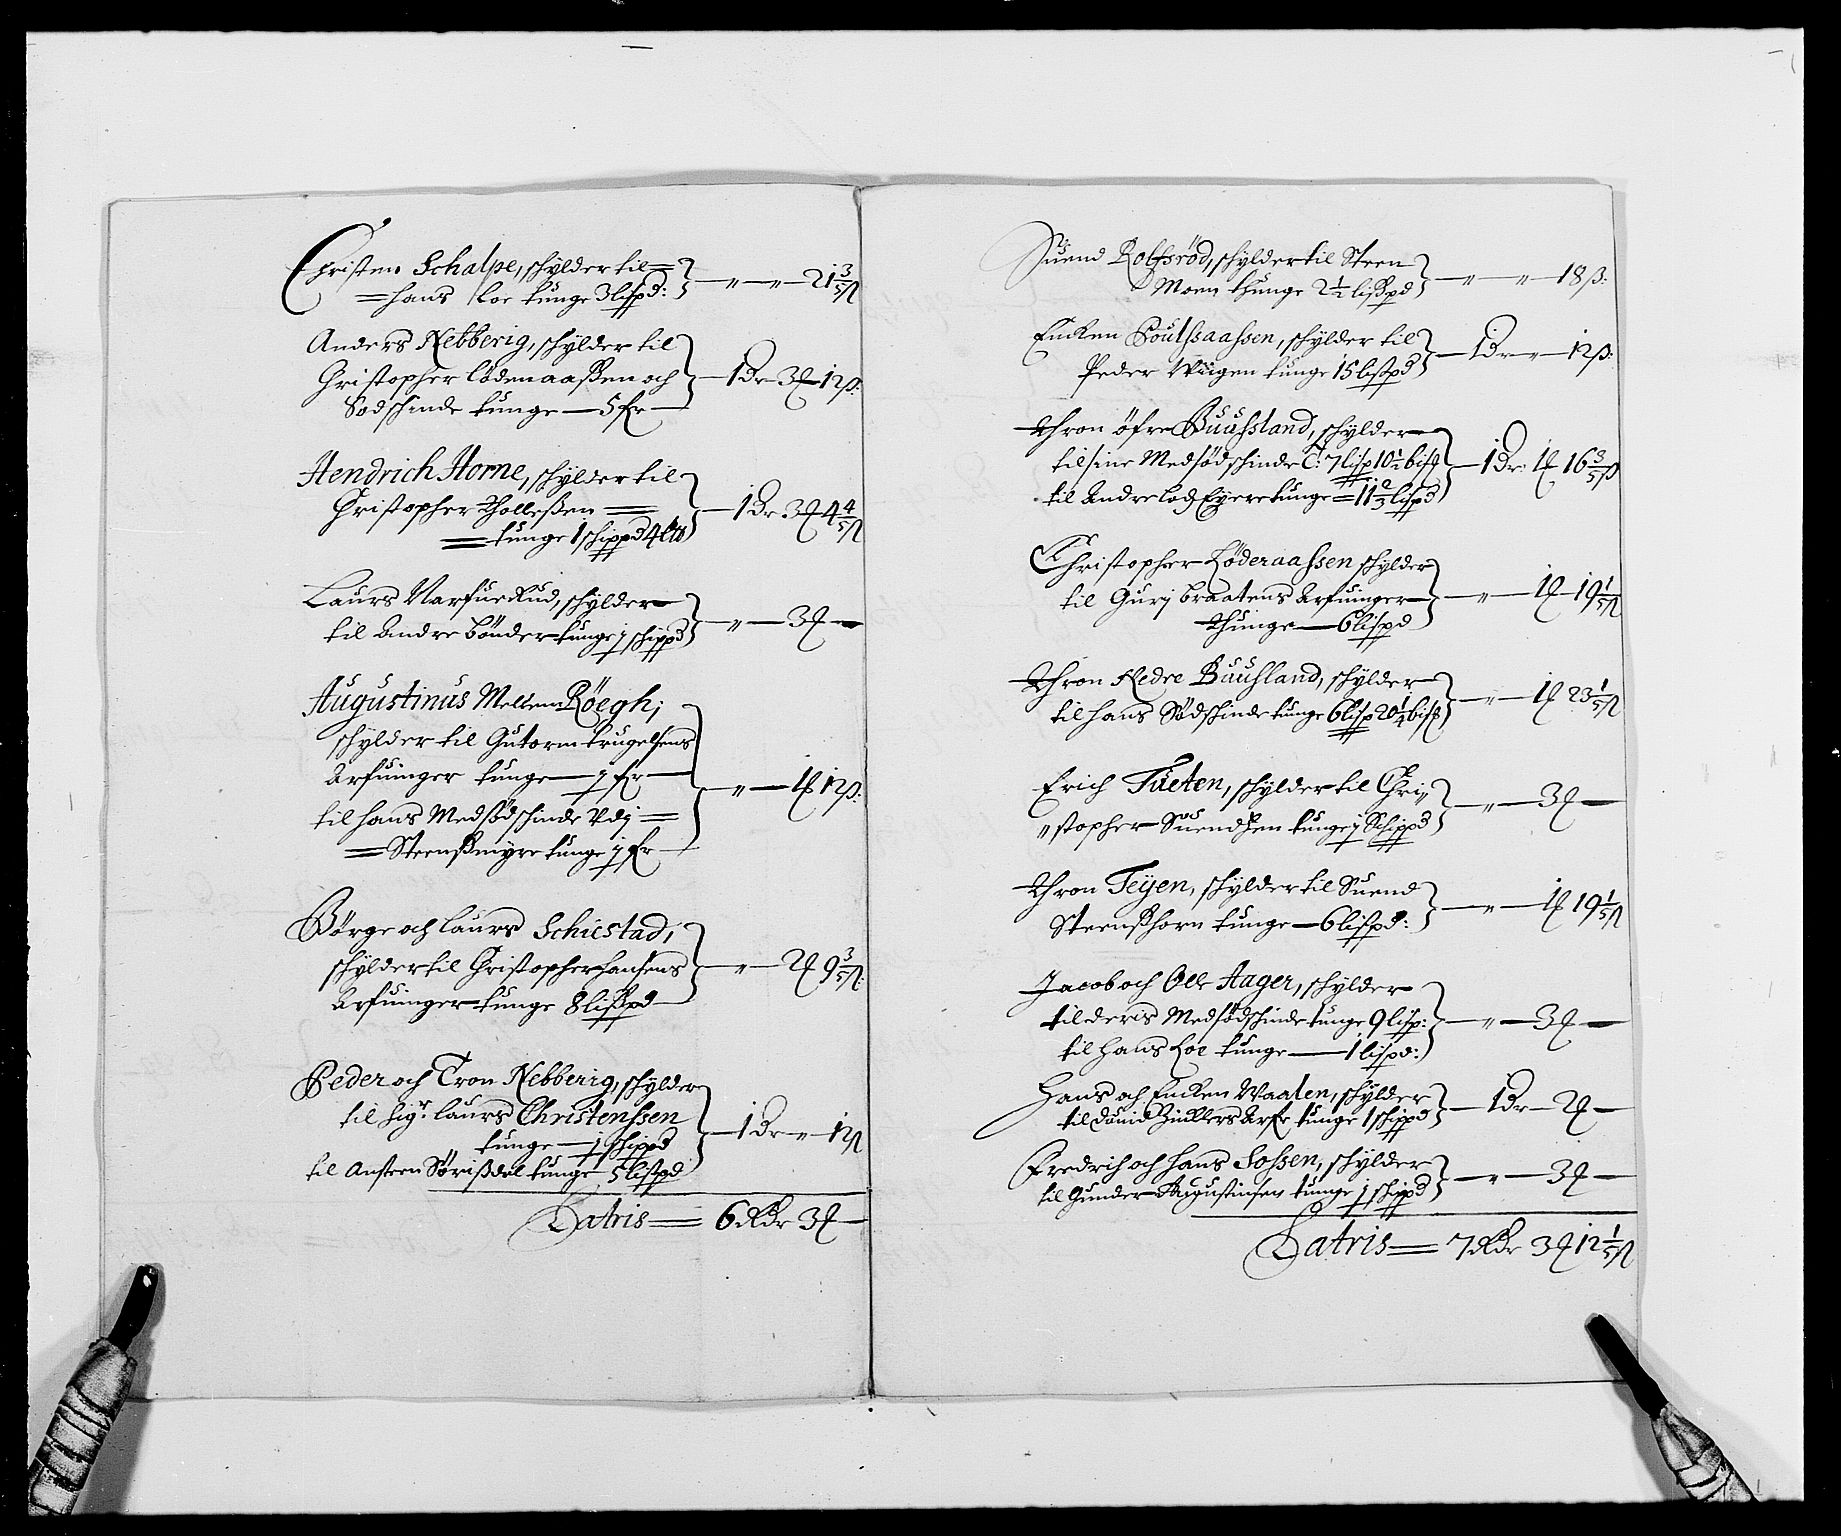 Christen Schalpe, schylder til =
= hans Loe tunge 3 lispd: — „ — „ — 21 3/5 ß
Anders Nebberig, schylder til
Christopher Lödenaaßen och
Sodschinde tunge — 5 fr — 1 Dr 3 ꝗ 12 ß:
Hendrich Horne, schylder til
Christopher Tholleßen =
= tunge 1 schippd 4 — 1 Dr 3 ꝗ 4 4/5 ß
Laurs Varfuerud, schylder
til Andre bönder tunge j schippd — „ — 3 ꝗ —
Augustinus Mellem Röegh;
schylder til Gutorm trugelsens
Arfuinger tunge — j fr —
til hans Medsödschinde Vdj =
= Steenßmyre tunge j fr — „ — 1 ꝗ 12 ß:
Börge och Laurs Schiestad;
schylder til Christopher hansens
Arfuinger tunge 8 lißpd — „ — 2 ꝗ 9 3/5 ß:
Peder och Tron Nebberig, schylder
til Sigr. Laurs Christenssen
tunge — j schippd
til Ansteen Sörißdal tunge 5 lispd — 1 Dr „ — 12 ß
Latris = 6 Rdr 3 ꝗ —
Suend Rolfsröd, schylder til Steen
Moen thunge 2 1/2 lißpd — „ — „ — 18 ß:
Encken Soulsaassen, schylder til
Peder Wiigen tunge 15 lispd — 1 Dr „ — 12 ß:
Thron öfre Buusland, schylder
til sine Medsödschinde T: 7 lisp 10 1/2 bisß
til Andre lodEyere tunge = 11 2/3 lispd — 1 Dr: 1 ꝗ 16 3/5 ß
Christopher Löderaassen schylder
til Gurj braatens Arfuinger
thunge — 6 lispd — „ — 1 ꝗ 19 1/5 ß
Thron Nedre Buusland, schylder
til hans Södschinde tunge 6 lisp 20 1/4 bisß — „ — 1 ꝗ 23 1/5 ß
Erich Tueten, schylder til Chri„
„stopher Suendßen tunge j Schippd — „ — 3 ꝗ —
Thron Teyen, schylder til Suend
Steenßhorn tunge — 6 lispd: — „ — 1 ꝗ 19 1/5 ß
Jacob och Oele Aager, schylder
til deris Medsödschinde tunge 9 lisp:
til hans Loe tunge — 1 lispd: — „ — 3 ꝗ —
Hans och Encken Waalen, schylder
til Dauid Arfr tunge 1 schippd — 1 Dr — 2 ꝗ —
Fredrich och hans Sossen, schylder
til Gunder Augustinsen tunge j schippd — „ — 3 ꝗ —
Latris = 7 Rdr 3 ꝗ 12 1/5 ß